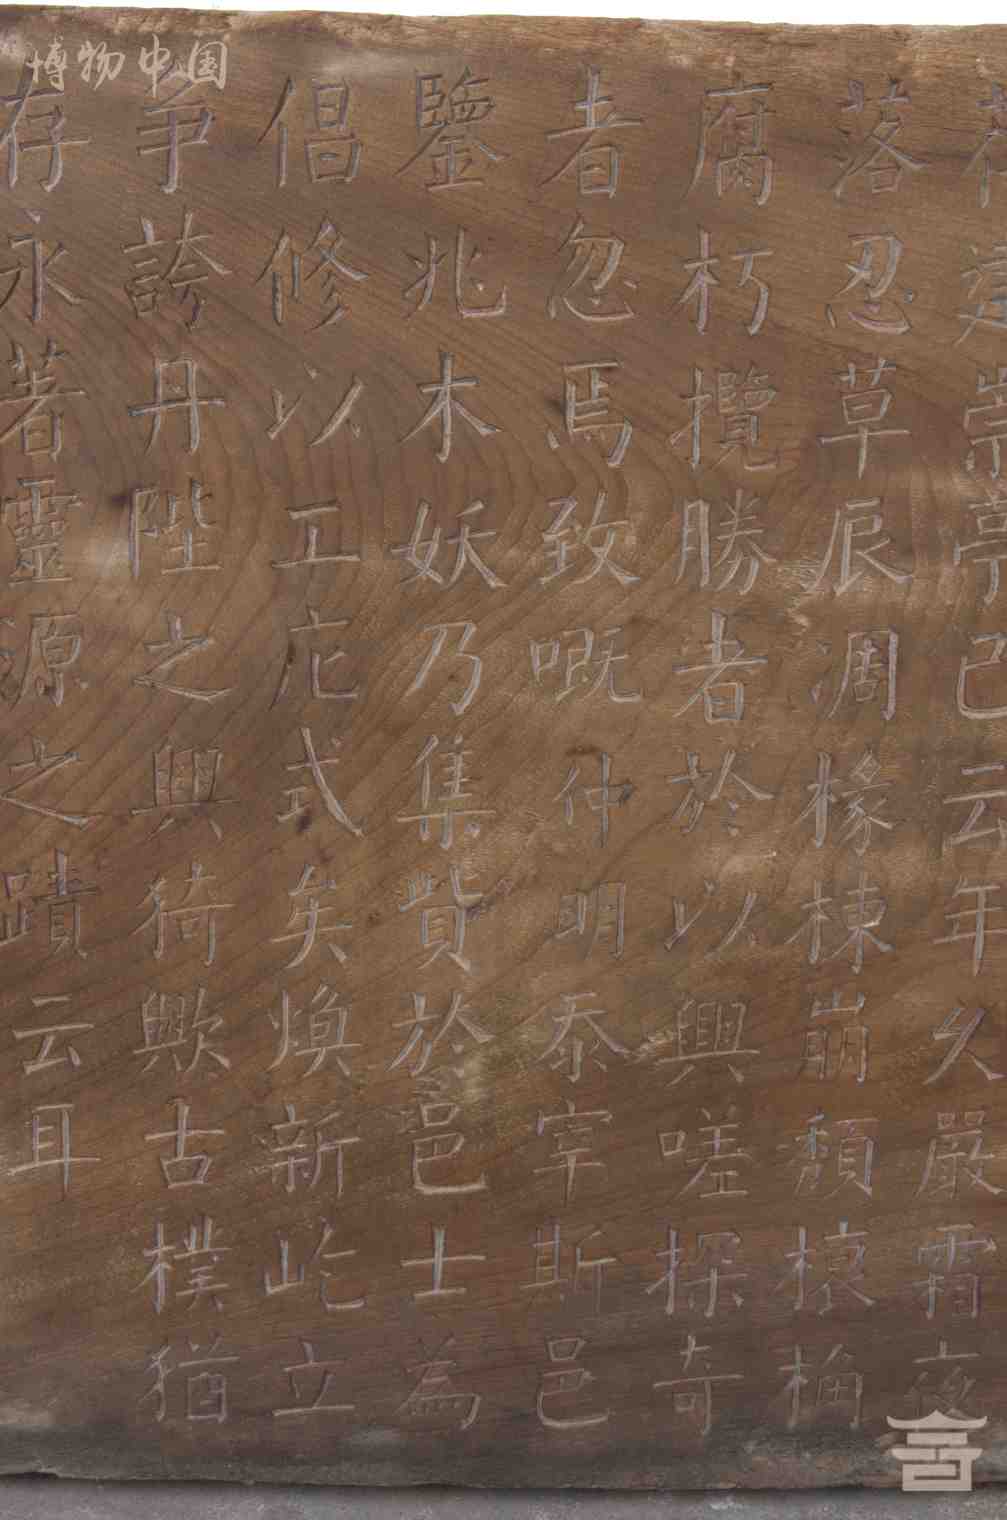 崇亭已云年久嚴霜夜
落忍草辰凋椽棟崩頹榱桷
腐朽攬勝者於以興嗟探奇
者忽焉致嘅仲明忝宰斯邑
鑒兆木妖乃集貲於邑士為
倡修以工庀式矣煥新屹立
爭誇丹陛之興猗歟古樸猶
存永著靈源之蹟云耳
博物中国